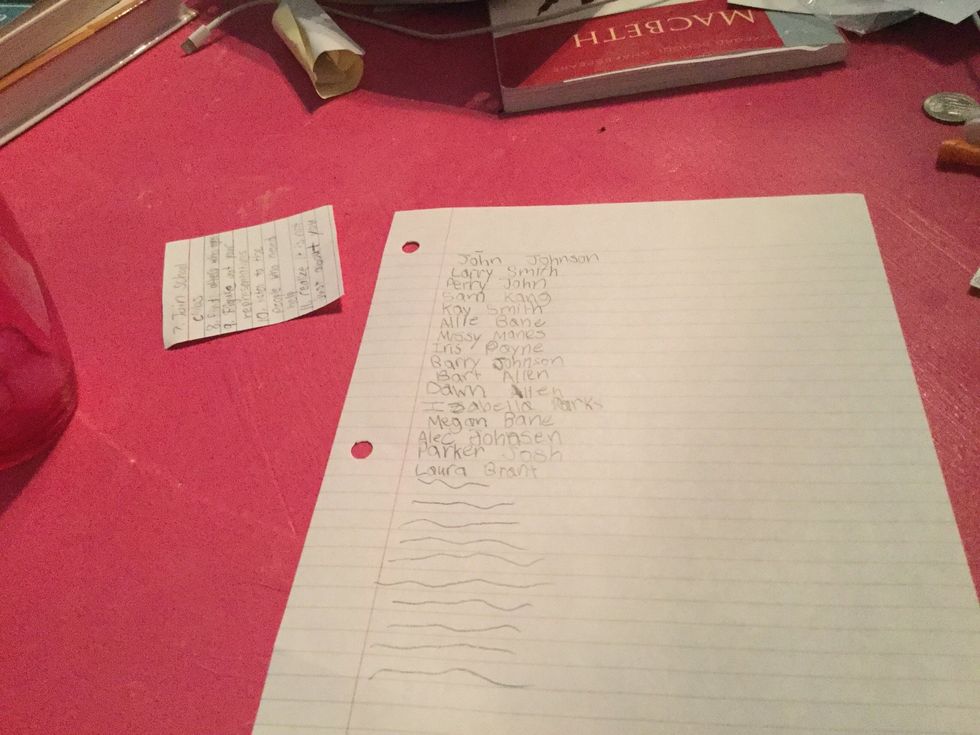 MACBETH
OXFORD SCHOOL SHAKESPEARE
7. Join School
Clubs
8. Find others who
9. Figure out your
representitives
10. listn to the
people who need
help
11. realize it is not
just about you
John Johnson
Larry Smith
Perry John
Sam Kang
Kay Smith
Allie Bane
Missy Manes
Iris Payne
Barry Johnson
Bart Allen
Dawn Allen
Izabella Parks
Megan Bane
Alec Johnsen
Parker Josh
Laura Grant